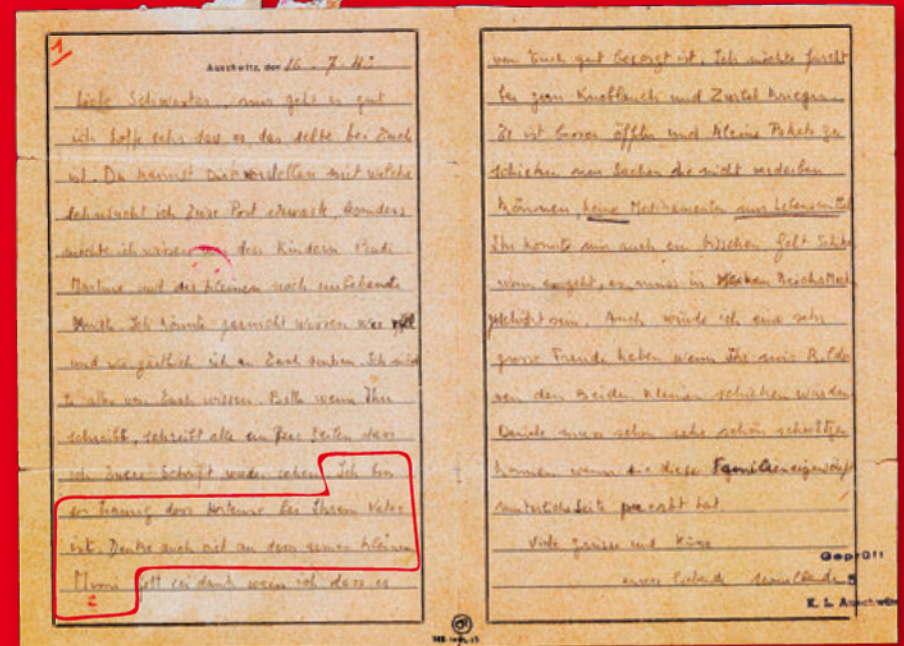 1/
Auschwitz, den 16-7-43
Liebe Schwester, mir geht es gut
ich hoffe sehr das es das selbe bei Euch
ist. Du kannst Dir vorstellen mit welche
Sehnsucht ich Eure Post erwarte, besonders
möchte ich wissen von den Kindern
Martine und der kleinen noch unbekannte
Ich könnte garnicht wissen wie
und wie zärtlich ich an Euch denke. Ich möch
te alles von Euch wissen. Bitte wenn Ihr
schreibt, schreibt alle ein Paar Zeilen dass
ich Euere Schrift sehen. Ich bin
so traurig dass Hortense bei Ihrem Vater
ist. Denke auch viel an dem armen kleinen
Mimi Gott sei dank weiss ich dass er
2
von Euch gut besorgt ist. Ich möchte furcht
bar gern Knoblauch und Zwiebel kriegen.
Es ist besser öfters und kleine Pakete zu
schicken nur Sachen die nicht verderben
können, keine Medikamenten nur Lebensmittel
Ihr könnt mir auch ein bisschen Geld
wenn es geht, es muss in Reichsmark
geschickt sein. Auch würde ich eine sehr
grosse Freude haben wenn Ihr mir Bilder
von den Beiden kleinen schicken würden
muss schon sehr schön
können wenn sie diese Familieneigenschaft
mütterliche Seite geerbt hat.
Viele Grüsse und Küsse
eure liebende
Geprüft
5
K. L. Auschwitz